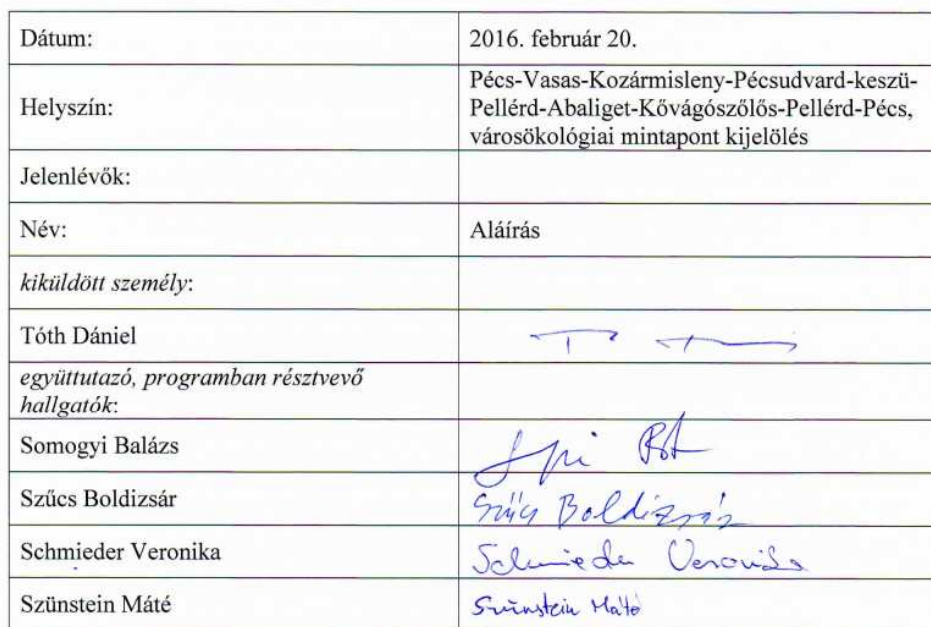 Dátum: 2016. február 20.
Helyszín: Pécs-Vasas-Kozármisleny-Pécsudvard-keszü-
Pellérd-Abaliget-Kővágószőlős-Pellérd-Pécs,
városökológiai mintapont kijelölés
Jelenlévők:
Név: Aláírás
kiküldött személy:
Tóth Dániel
együttutazó, programban résztvevő
hallgatók:
Somogyi Balázs
Szűcs Boldizsár Szűcs Boldizsár
Schmieder Veronika Schmieder Veronika
Szünstein Máté Szünstein Máté